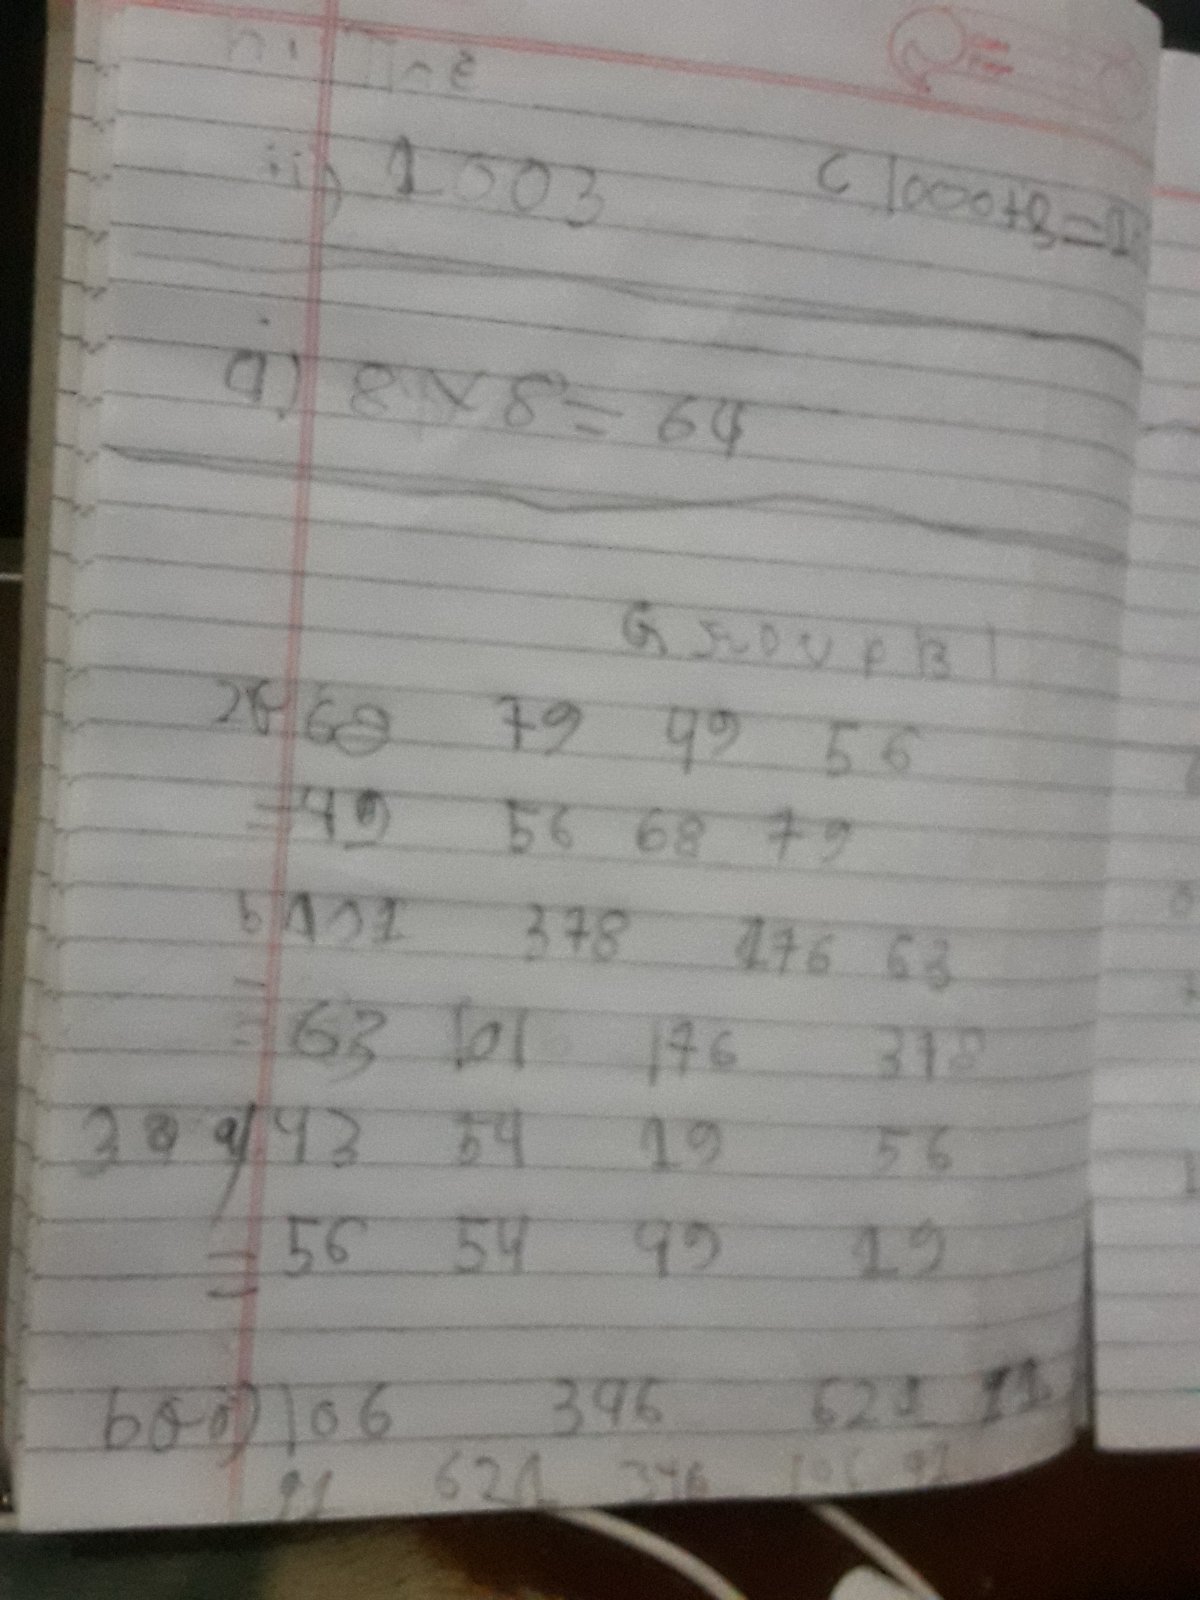 ii) 1003 C 1000+3=1
a) 8×8=64
Group B
68 79 49 56
=49 56 68 79
b) 101 378 176 63
= 63 101 176 378
3 a) 43 54 19 56
= 56 54 49 19
b 106 396 621 11
621 106